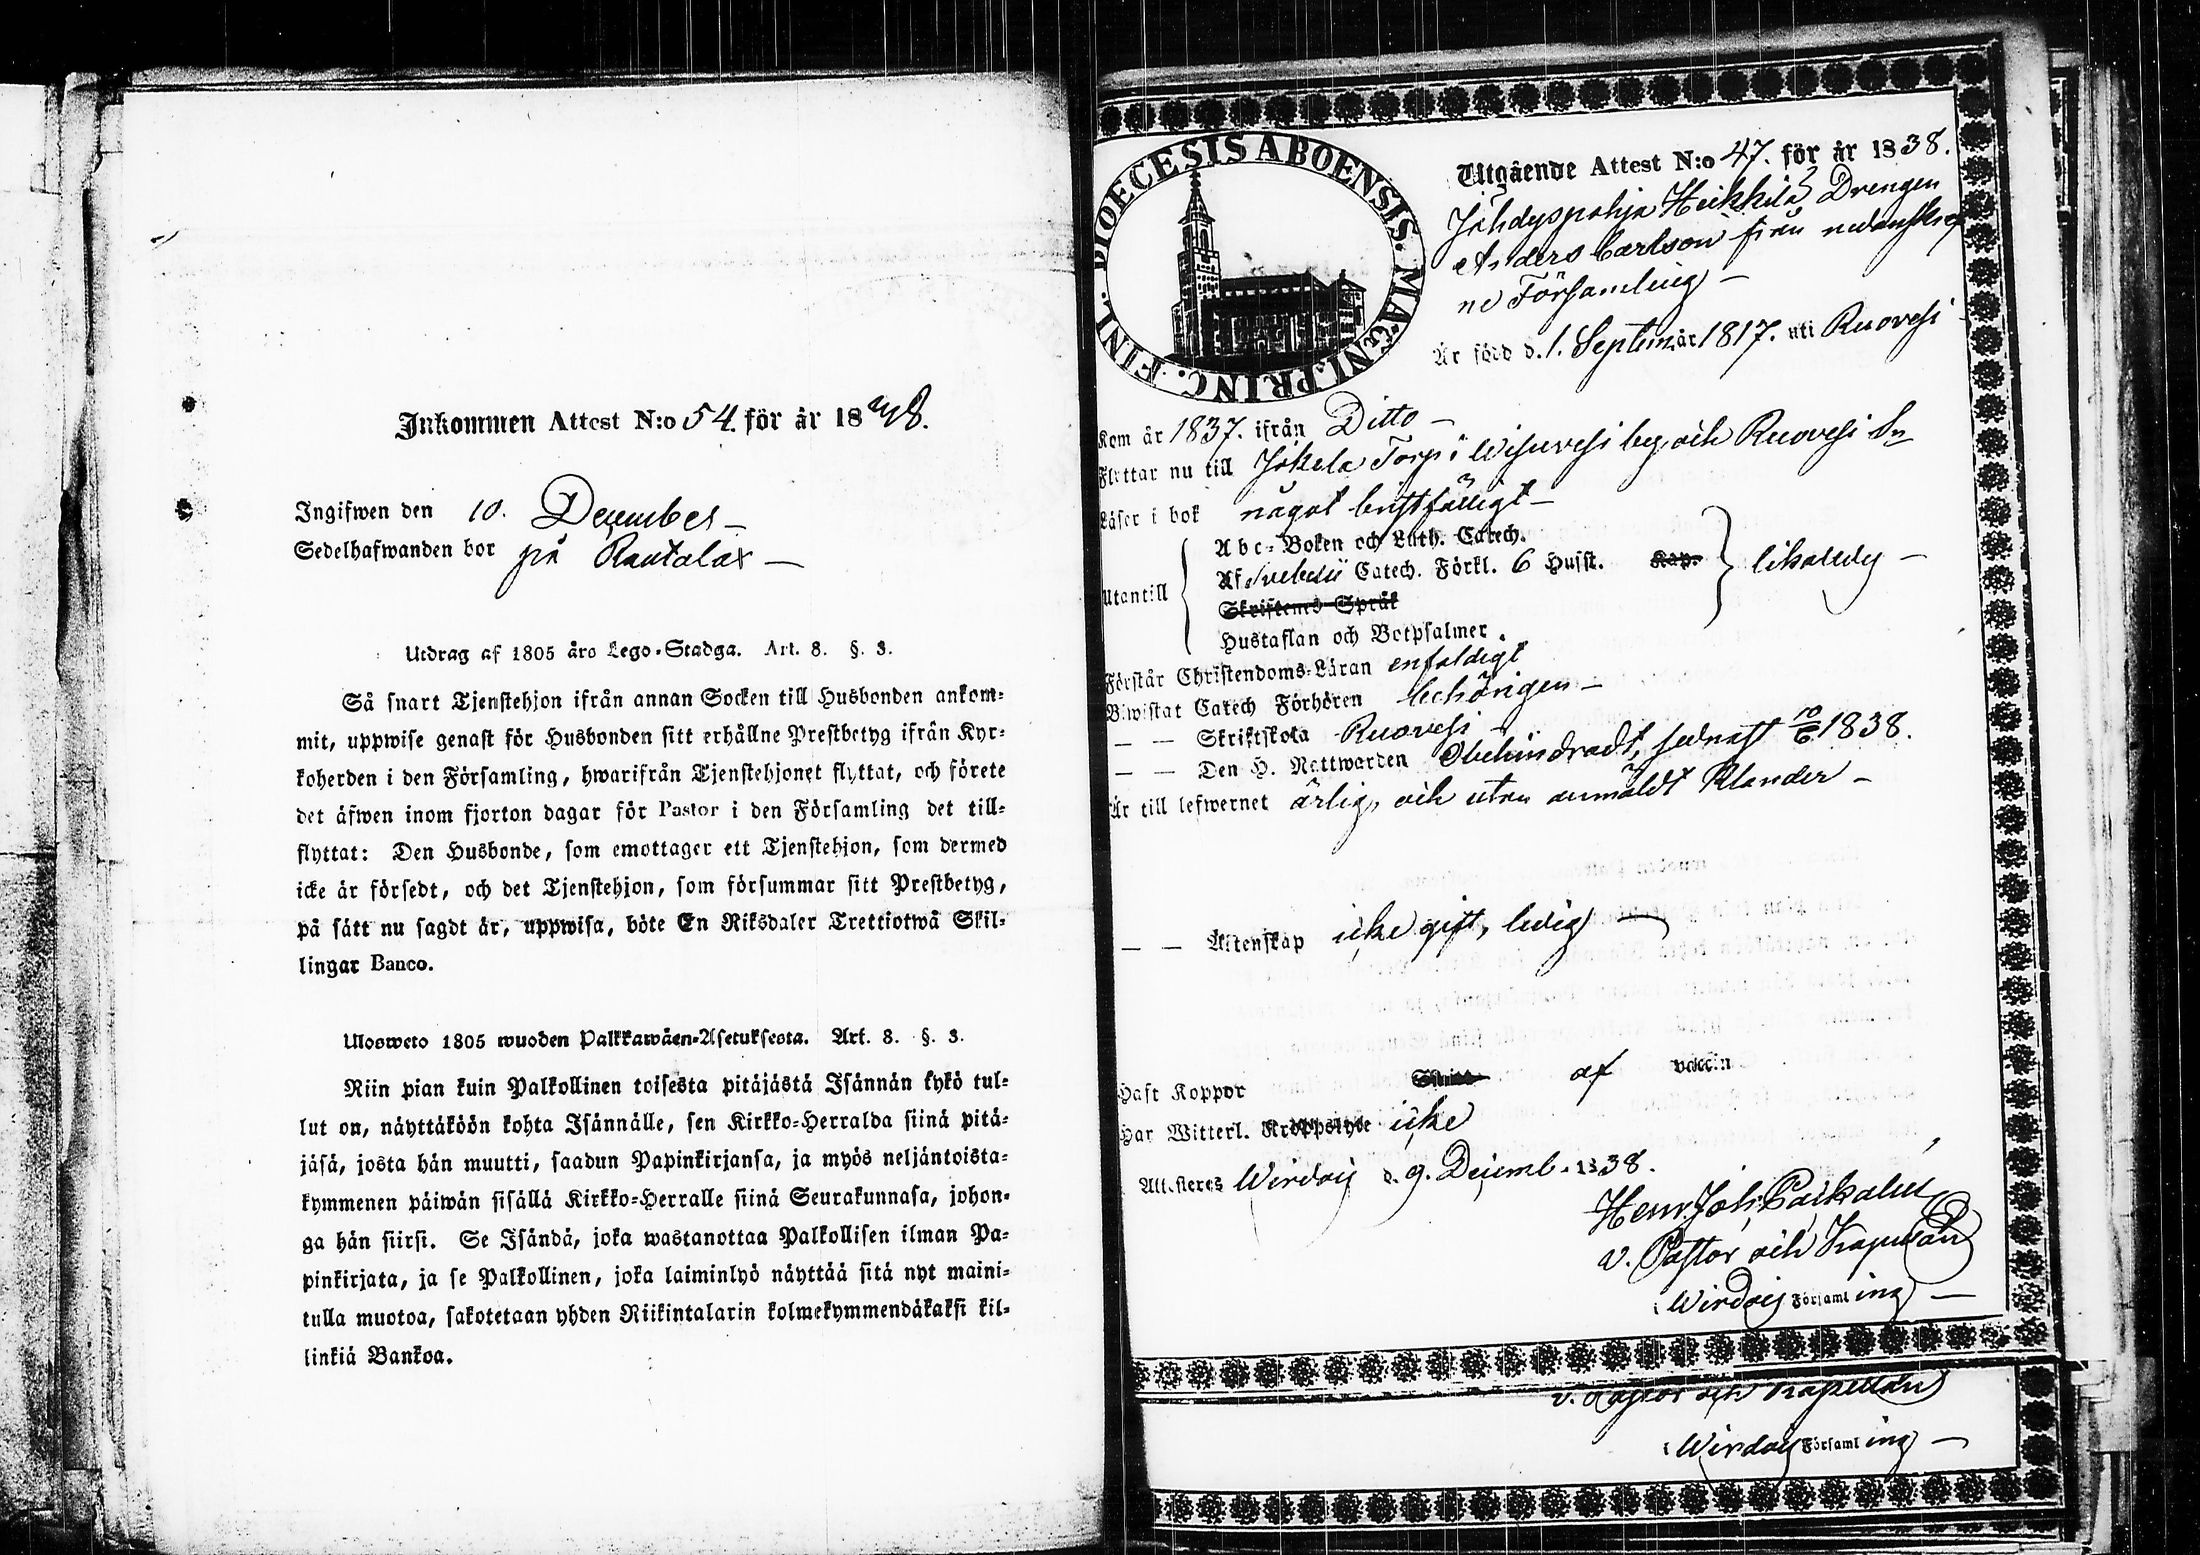 Inkommen Attest N:o 54. för år 1838.
Ingifwen den 10. December –
Sedelhafwanden bor på Rautalax –
Utdrag af 1805 års Lego-Stadga. Art. 8. §. 3.
Så snart Tjenstehjon ifrån annan Socken till Husbonden ankom-
mit, uppwise genast för Husbonden sitt erhållne Prestbetyg ifrån Kyr-
koherden i den Församling, hwarifrån Tjenstehjonet flyttat, och förete
det äfwen inom fjorton dagar för Pastor i den Församling det till-
flyttat: Den Husbonde, som emottager ett Tjenstehjon, som dermed
icke är försedt, och det Tjenstehjon, som försummar sitt Prestbetyg,
på sätt nu sagdt är, uppwisa, böte En Riksdaler Trettiotwå Skil-
lingar Banco.
Ulosweto 1805 wuoden Palkkawäen-Asetuksesta. Art. 8. §. 3.
Niin pian kuin Palkollinen toisesta pitäjästä Isännän tykö tul-
lut on, näyttäköön kohta Isännälle, sen Kirkko-Herralda siinä pitä-
jäsä, josta hän muutti, saadun Papinkirjansa, ja myös neljäntoista-
kymmenen päiwän sisällä Kirkko-Herralle siinä Seurakunnasa, johon-
ga hän siirsi. Se Isändä, joka wastanottaa Palkollisen ilman Pa-
pinkirjata, ja se Palkollinen, joka laiminlyö näyttää sitä nyt maini-
tulla muotoa, sakotetaan yhden Riikintalarin kolmekymmendäkaksi kil-
linkiä Bankoa.
DIOECESIS ABOENSIS. MAGNI. PRINC. FINL.
Utgående Attest N:o 47. för år 1838.
Jähdyspohja Heikkilä Drengen
Anders Carlson från nedanskref
ne Församling –
Är född d. 1. Septem. år 1817. uti Ruovesi
Kom år 1837. ifrån Ditto –
Flyttar nu till Jokela Torp i Wisuvesi by, och Ruovesi Sn
Läser i bok något bristfälligt –
Utantill
Abc-Boken och Luth. Catech.
Af Svebelii Catech. Förkl. 6 Hufst. Kap. likaledes –
Skriftens Språk
Hustaflan och Botpsalmer.
Förstår Christendoms-Läran enfaldigt
Biwistat Catech Förhören behörigen –
– – Skriftskola Ruovesi –
– – Den H. Nattwarden Obehindradt, sednast 10/6 1838.
Är till lefwernet ärlig, och utan anmäldt Klander –
– – Äktenskap icke gift, ledig –
Haft Koppor af vaccin
Har Witterl. Kroppslyte icke
Attesteras Wirdois d. 9. Decemb. 1838.
Henr. Joh.
v. Pastor och Kapellan
i Wirdois Församling –
v. Pastor och Kapellan
i Wirdois Församling –